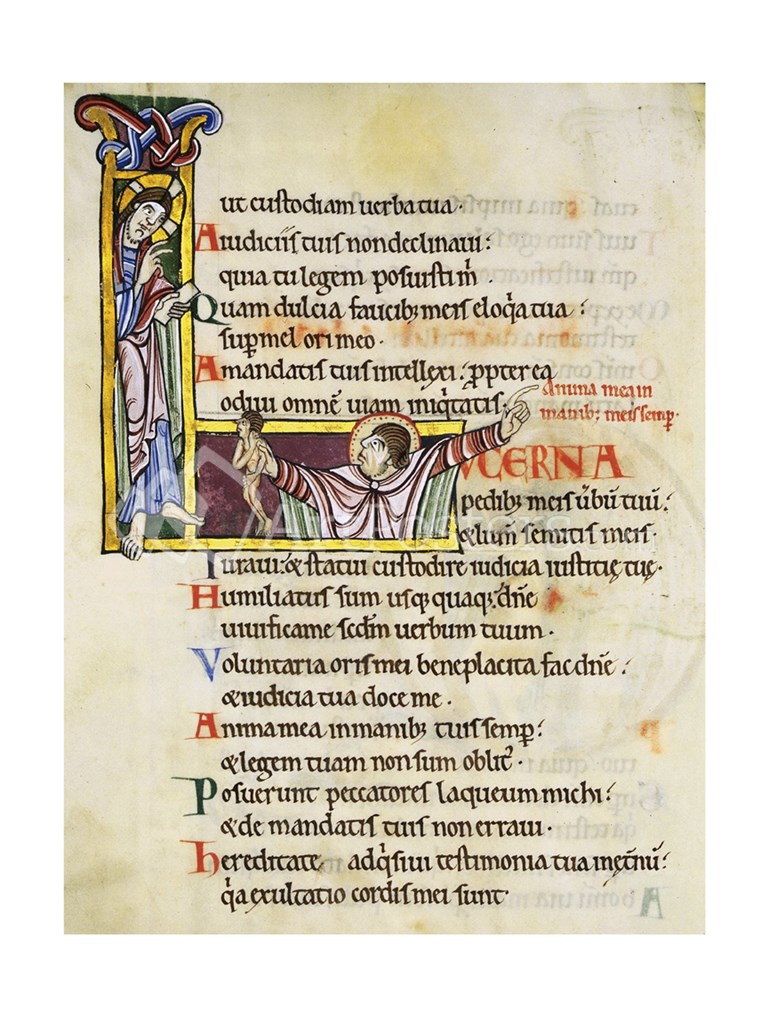 ut custodiam uerba tua·
A iudiciis tuis non declinaui:
quia tu legem posuisti m̄·
Quam dulcia faucib; meis eloq̄a tua:
sup mel ori meo·
A mandatis tuis intellexi: ꝓpterea
odiui omnē uiam iniq̄tatis·
Anima mea in
manib: meis semp·
LUCERNA
pedib; meis ūbū tuū:
& lum̄ semitis meis·
Iuraui: & statui custodire iudicia iustitię tuę·
Humiliatus sum usq; quaq; dn̄e
uiuifica me scd̄m uerbum tuum·
Voluntaria oris mei beneplacita fac dn̄e:
& iudicia tua doce me·
Anima mea in manib; tuis semp:
& legem tuam non sum oblit᾿·
Posuerunt peccatores laqueum michi:
& de mandatis tuis non erraui·
hereditate adq̄siui testimonia tua in et̄nū:
q̄a exultatio cordis mei sunt·